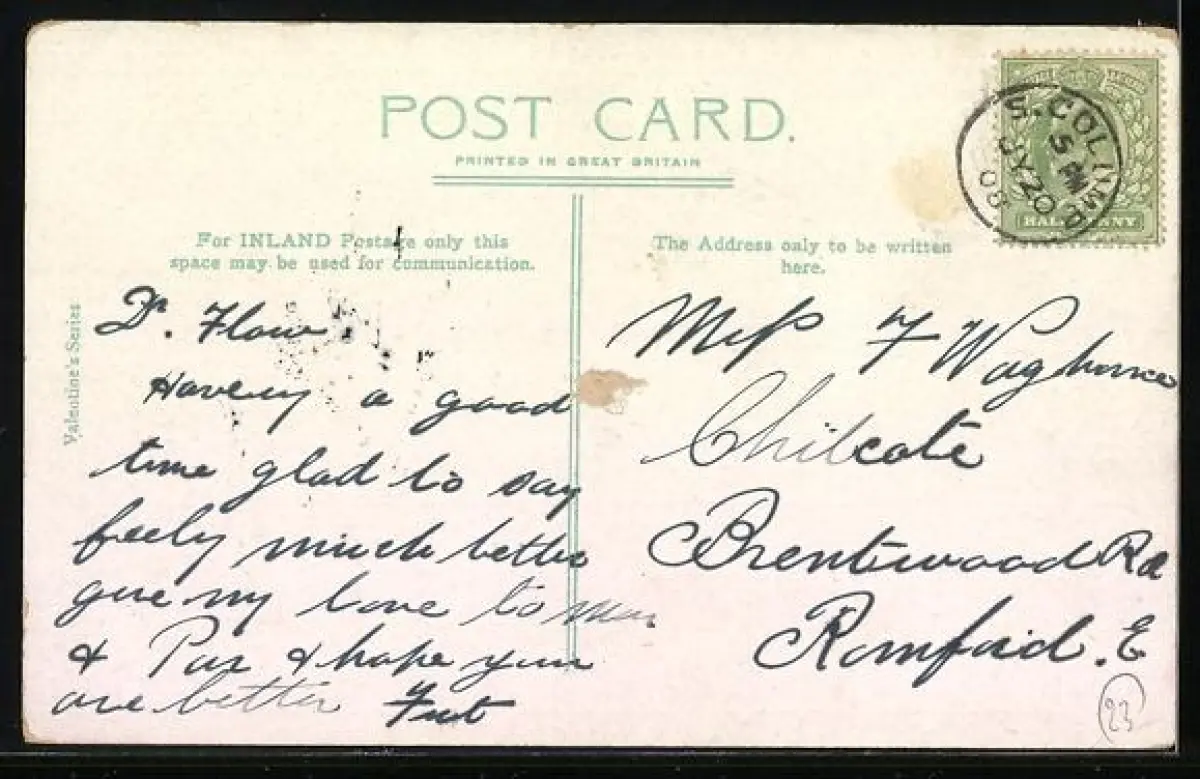 POST CARD.
PRINTED IN GREAT BRITAIN
For INLAND Postage only this
space may be used for communication.
The Address only to be written
here.
Valentine's Series
S. COLUMB
5 PM
JY 20
08
HALFPENNY
Dr. Flow.
Having a good
time glad to say
feeling much better
give my love to Mar
& Par & hope you
are better
Miss F Waghorne
Chilcote
Brentwood Rd
Romford. E
23